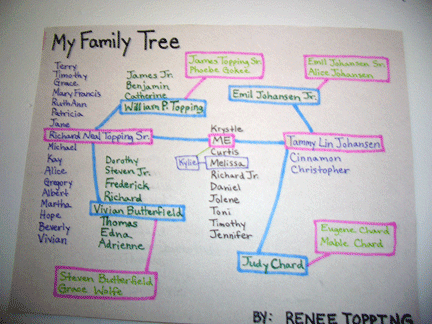 My Family Tree
James Topping Sr.
Phoebe Gokee
Emil Johansen Sr.
Alice Johansen
Terry
Timothy
Grace
Mary Francis
RuthAnn
Patricia
Jane
Richard Neal Topping Sr.
Michael
Kay
Alice
Gregory
Albert
Martha
Hope
Beverly
Vivian
James Jr.
Benjamin
Catherine
William P. Topping
Emil Johansen Jr.
Krystle
ME
Curtis
Kylie
Melissa
Richard Jr.
Daniel
Jolene
Toni
Timothy
Jennifer
Tammy Lin Johansen
Cinnamon
Christopher
Dorothy
Steven Jr.
Frederick
Richard
Vivian Butterfield
Thomas
Edna
Adrienne
Eugene Chard
Mable Chard
Judy Chard
Steven Butterfield
Grace Waite
BY: RENEE TOPPING